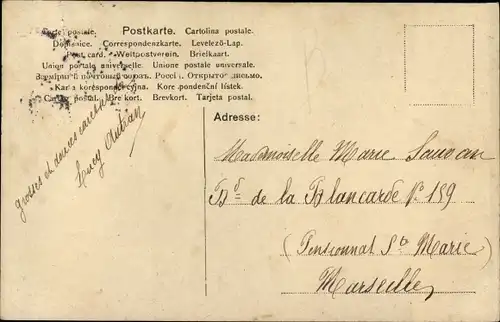 Carte postale. Postkarte. Cartolina postale.
Dopisnice. Correspondenzkarte. Levelező-Lap.
Post card. Weltpostverein. Briefkaart.
Union postale universelle. Unione postale universale.
Всемірный почтовый союзъ. Россія. Открытое письмо.
Karta korespondencyjna. Korespondenční lístek.
Cartão postal. Brefkort. Brevkort. Tarjeta postal.
grosses et douces caresses
Lucy
Adresse:
Mademoiselle Marie
Bd de la Blancarde No 159
(Pensionnat Ste Marie)
Marseille